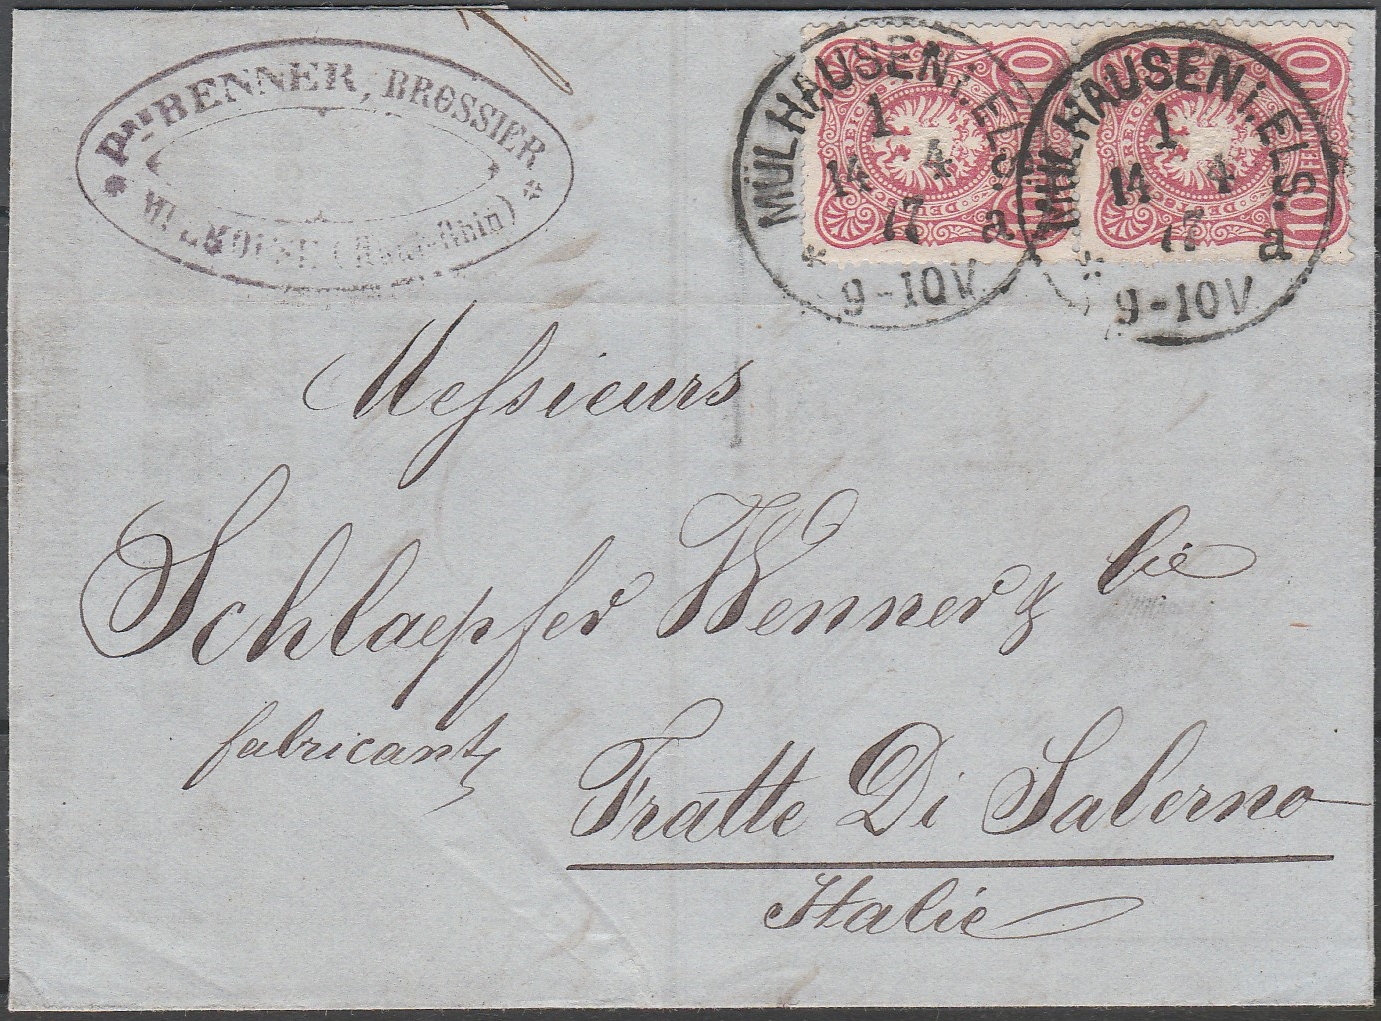 BENNER, BROSSIER
(Haut-Rhin)
MÜLHAUSEN i. ELS.
1
14 4
17 a
9-10V
MÜLHAUSEN i. ELS.
1
14 4
17 a
9-10V
10 10
DEUTSCHE REICHS
Messieurs
Schlaepfer Wenner & Cie
fabricants
Fratte Di Salerno
Italie